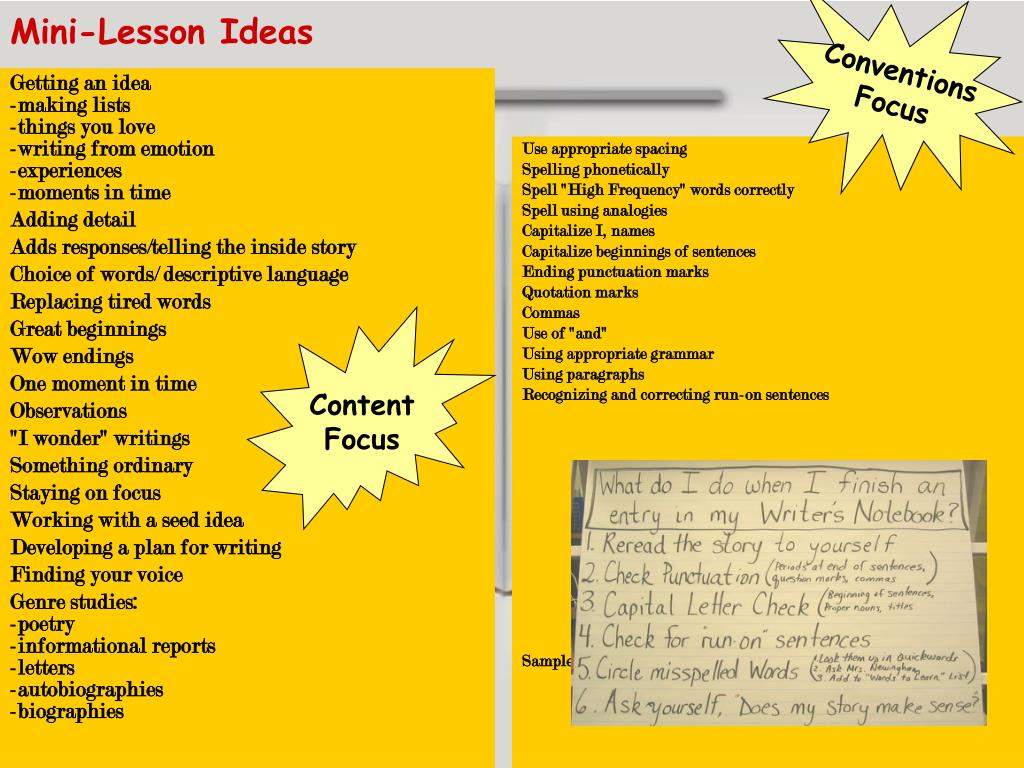 Mini-Lesson Ideas
Getting an idea
-making lists
-things you love
-writing from emotion
-experiences
-moments in time
Adding detail
Adds responses/telling the inside story
Choice of words/ descriptive language
Replacing tired words
Great beginnings
Wow endings
One moment in time
Observations
"I wonder" writings
Something ordinary
Staying on focus
Working with a seed idea
Developing a plan for writing
Finding your voice
Genre studies:
-poetry
-informational reports
-letters
-autobiographies
-biographies
Content
Focus
Conventions
Focus
Use appropriate spacing
Spelling phonetically
Spell "High Frequency" words correctly
Spell using analogies
Capitalize I, names
Capitalize beginnings of sentences
Ending punctuation marks
Quotation marks
Commas
Use of "and"
Using appropriate grammar
Using paragraphs
Recognizing and correcting run-on sentences
Sample
What do I do when I finish an
entry in my Writer's Notebook?
1. Reread the story to yourself
2. Check Punctuation (Periods at end of sentences,
question marks, commas)
3. Capital Letter Check (Beginning of sentences,
Proper nouns, titles
4. Check for "run-on" sentences
5. Circle misspelled Words (1. Look them up in Quickwords
2. Ask Mrs. Newingham
3. Add to "Words to Learn" List)
6. Ask yourself, "Does my story make sense?